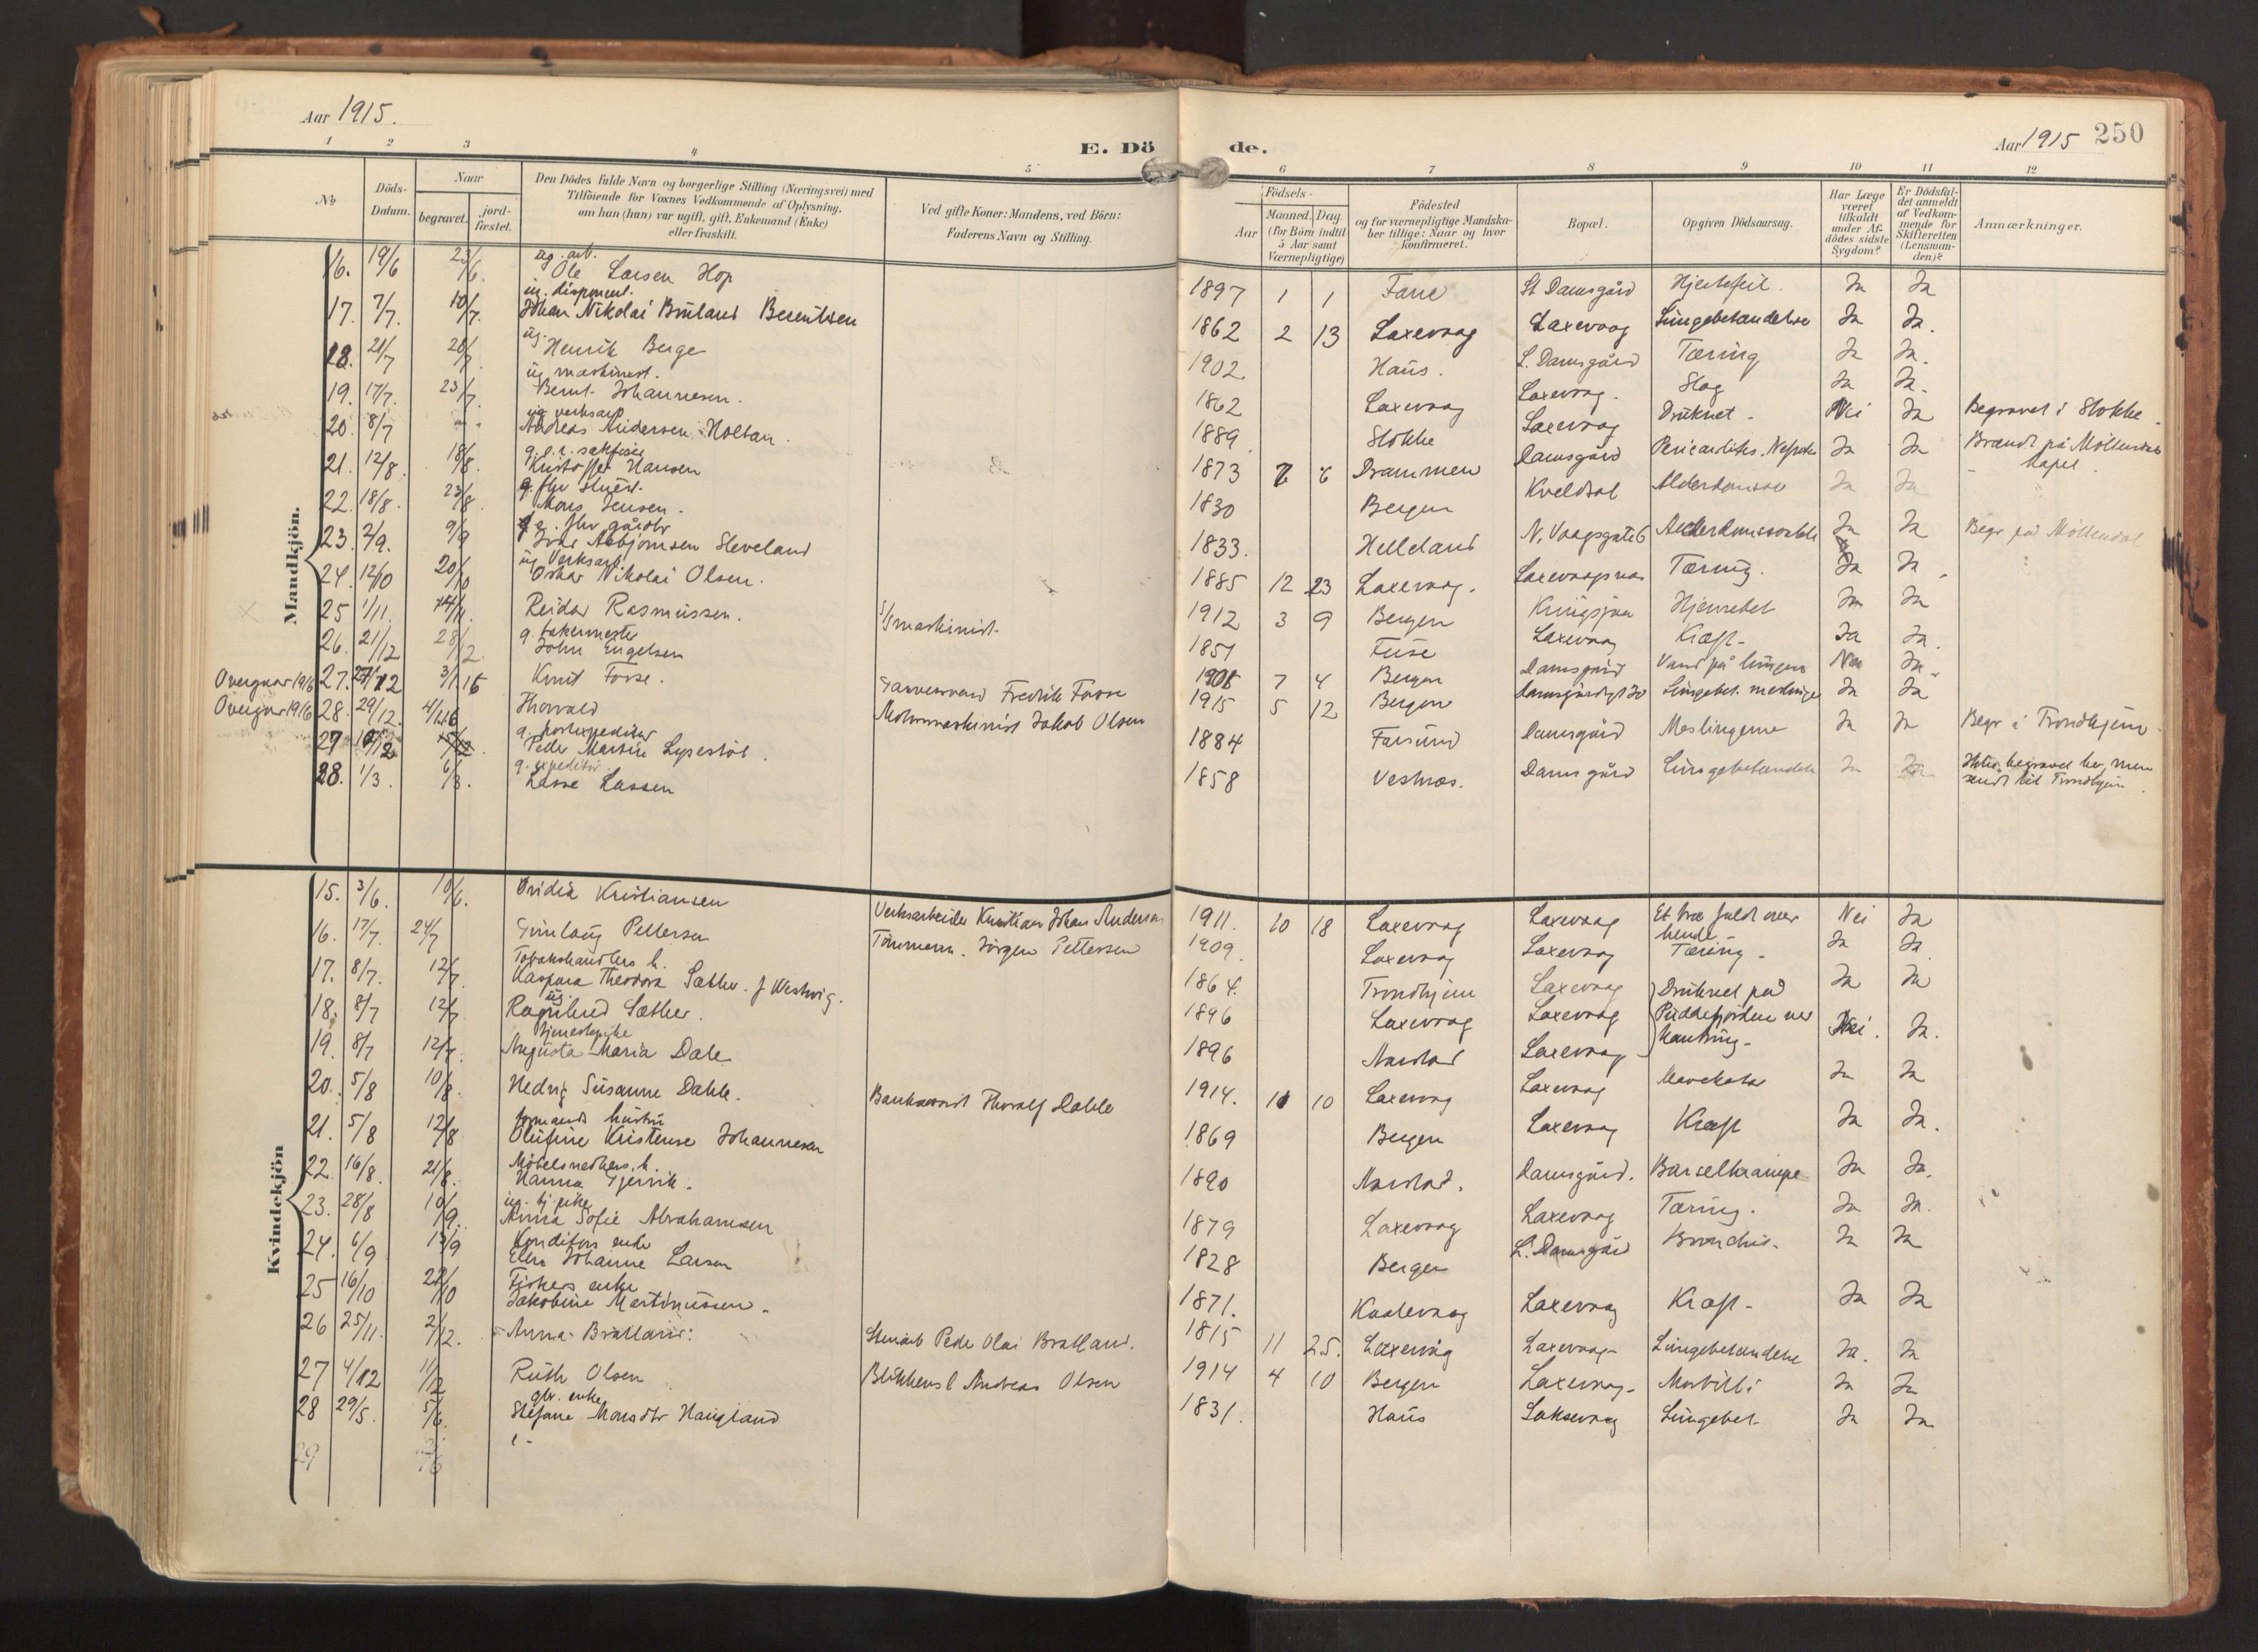 Aar 1915.
E. Döde.
Aar 1915 250
1 2 3 4 5 6 7 8 9 10 11 12
No
Döds-Datum.
Naar
begravet.
jord-fæstet.
Den Dödes fulde Navn og borgerlige Stilling (Næringsvei) med
Tilföiende for Voxnes Vedkommende af Oplysning,
om han (hun) var ugift, gift, Enkemand (Enke)
eller fraskilt.
Ved gifte Koner: Mandens, ved Börn:
Faderens Navn og Stilling.
Födsels-
Aar
Maaned. Dag.
(for Börn indtil
5 Aar samt
Værnepligtige)
Födested
og for værnepligtige Mandska-
ber tillige: Naar og hvor
konfirmeret.
Bopæl.
Opgiven Dödsaarsag.
Har Læge
været
tilkaldt
under Af-
dödes sidste
Sygdom?
Er Dödsfal-
det anmeldt
af Vedkom-
mende for
Skifteretten
(Lensman-
den)?
Anmærkninger.
Mandkjön.
16. 19/6 23/6. ug. arb. Ole Larsen Hop 1897 1 1 Fane St. Damsgård Hjertefeil. Ja Ja
17. 7/7. 10/7. ug. disponent. Johan Nikolai Bruland Berentsen 1862 2 13 Laxevaag Laxevaag Lungebetændelse Ja Ja.
18. 21/7 26/7 ug. Henrik Berge 1902 Haus. L. Damsgård Tæring Ja Ja.
19. 17/7. 23/7 ug maskinist. Bernt Johannesen. 1862 Laxevaag Laxevaag. Slag Ja Ja.
20. 8/7 ug verksarb Andreas Andersen Holtan. 1889. Stokke Laxevaag Druknet. Nei Ja Begravet i Stokke.
21. 12/8. 18/8. Kristoffer Hansen 1873 7 6 Drammen Damsgård Ja Ja Brændt på Möllendals kapel
22. 18/8. 23/8 Mons Jensen. 1830 Bergen Kveldsol Ja Ja
23. 2/9. 9/9 Asbjörnsen Steveland 1833. Helleland N. Vaagsgate 6 Ja Ja Begr på Möllendal
24. 12/10 20/10 ug Verksarb. Oskar Nikolai Olsen. 1885 12 23 Laxevaag. Laxevaagsnes Tæring. Ja Ja
25 1/11. Reidar Rasmussen. S/S maskinist 1912 3 9 Bergen Kringsjaa Ja Ja
26. 21/12 28/12. g. bakermester John Engelsen 1851 Fuse Laxevaag Kræft Ja Ja.
Overgaar 1916 27. 27/12 3/1.16 Knut Fosse. Fredrik Fosse 1908 7 4 Bergen Damsgård Vand på lungen Nei Ja.
Overgaar 1916 28. 29/12. 4/1.16 Thorvald Motormaskinist Jakob Olsen 1915 5 12 Bergen Damsgårdsgt 30 Ja Ja
29 g. postexpeditör Peder Martin Lypestöl. 1884 Farsund Damsgård Meslingerne Ja Ja Begr i Trondhjem
28. 1/3. 6/3. g. expeditör Lasse Lassen 1858 Vestnæs. Damsgård Lungebetændelse Ja Ja Ikke begravet her, men sendt til Trondhjem.
Kvindekjön
15. 3/6. 10/6. Ovidia Kristiansen Verksarbeider Kristian Johan Andersen 1911. 10 18 Laxevaag Laxevaag Et træ faldt over hende Nei Ja
16. 17/7. 24/7 Gunlaug Pettersen Tömmerm. Jörgen Pettersen 1909. Laxevaag Laxevaag Tæring. Ja Ja
17. 8/7. 12/7. Tobakshandlers h. Kaspara Theodora Sæther. f Westvig. 1864. Trondhjem Laxevaag Ja Ja
18. 8/7 12/7 ug. Ragnhild Sæther. 1896 Laxevaag Laxevaag Druknet på Puddefjorden ved kantring. Nei. Ja.
19. 8/7 12/7. tjenestepike Augusta Maria Dale 1896 Laxevaag
20. 5/8 10/8. Hedvig Susanne Dahle. Bankassist Thoralf Dahle 1914. 10 10 Laxevaag Laxevaag Ja Ja
21. 5/8 12/8 formands hustru Olufine Kristense Johannesen 1869 Bergen Laxevaag Kræft Ja Ja.
22. 16/8. 21/8. Möbelsnedkers h. Hanna Gjervik. 1890 Damsgård. Barselkrampe Ja Ja.
23. 28/8 10/9. ug. tj. pike Anna Sofie Abrahamsen 1879 Laxevaag Laxevaag Tæring. Ja Ja.
24. 6/9. 13/9 Konditors enke Elen Johanne Larsen 1828 Bergen L. Damsgård Bronchit. Ja Ja
25 16/10 22/10 Fiskers enke Jakobine Martinussen. 1871. Laxevaag Kræft Ja Ja
26 25/11. 2/12. Anna Bratland: Stenarb Peder Olai Bratland. 1815 11 25. Laxevåg Laxevaag Lungebetændelse Ja. Ja
27 4/12 11/12 Ruth Olsen Blikkensl Andreas Olsen 1914 4 10 Bergen Laxevaag. Morbilli Ja Ja
28 29/5. 5/6. gbr. enke Stefane Monsdtr Haugland 1831. Haus Laksevaag Lungebet. Ja Ja
29